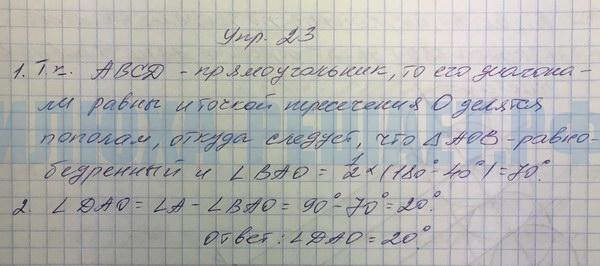 Упр. 23
1. Т.к. ABCD - прямоугольник, то его диагона-
ли равны и точкой пересечения O делятся
пополам, откуда следует, что △AOB - равно-
бедренный и ∠BAO = 1/2 × (180° - 40°) = 70°.
2. ∠DAO = ∠A - ∠BAO = 90° - 70° = 20°.
Ответ: ∠DAO = 20°